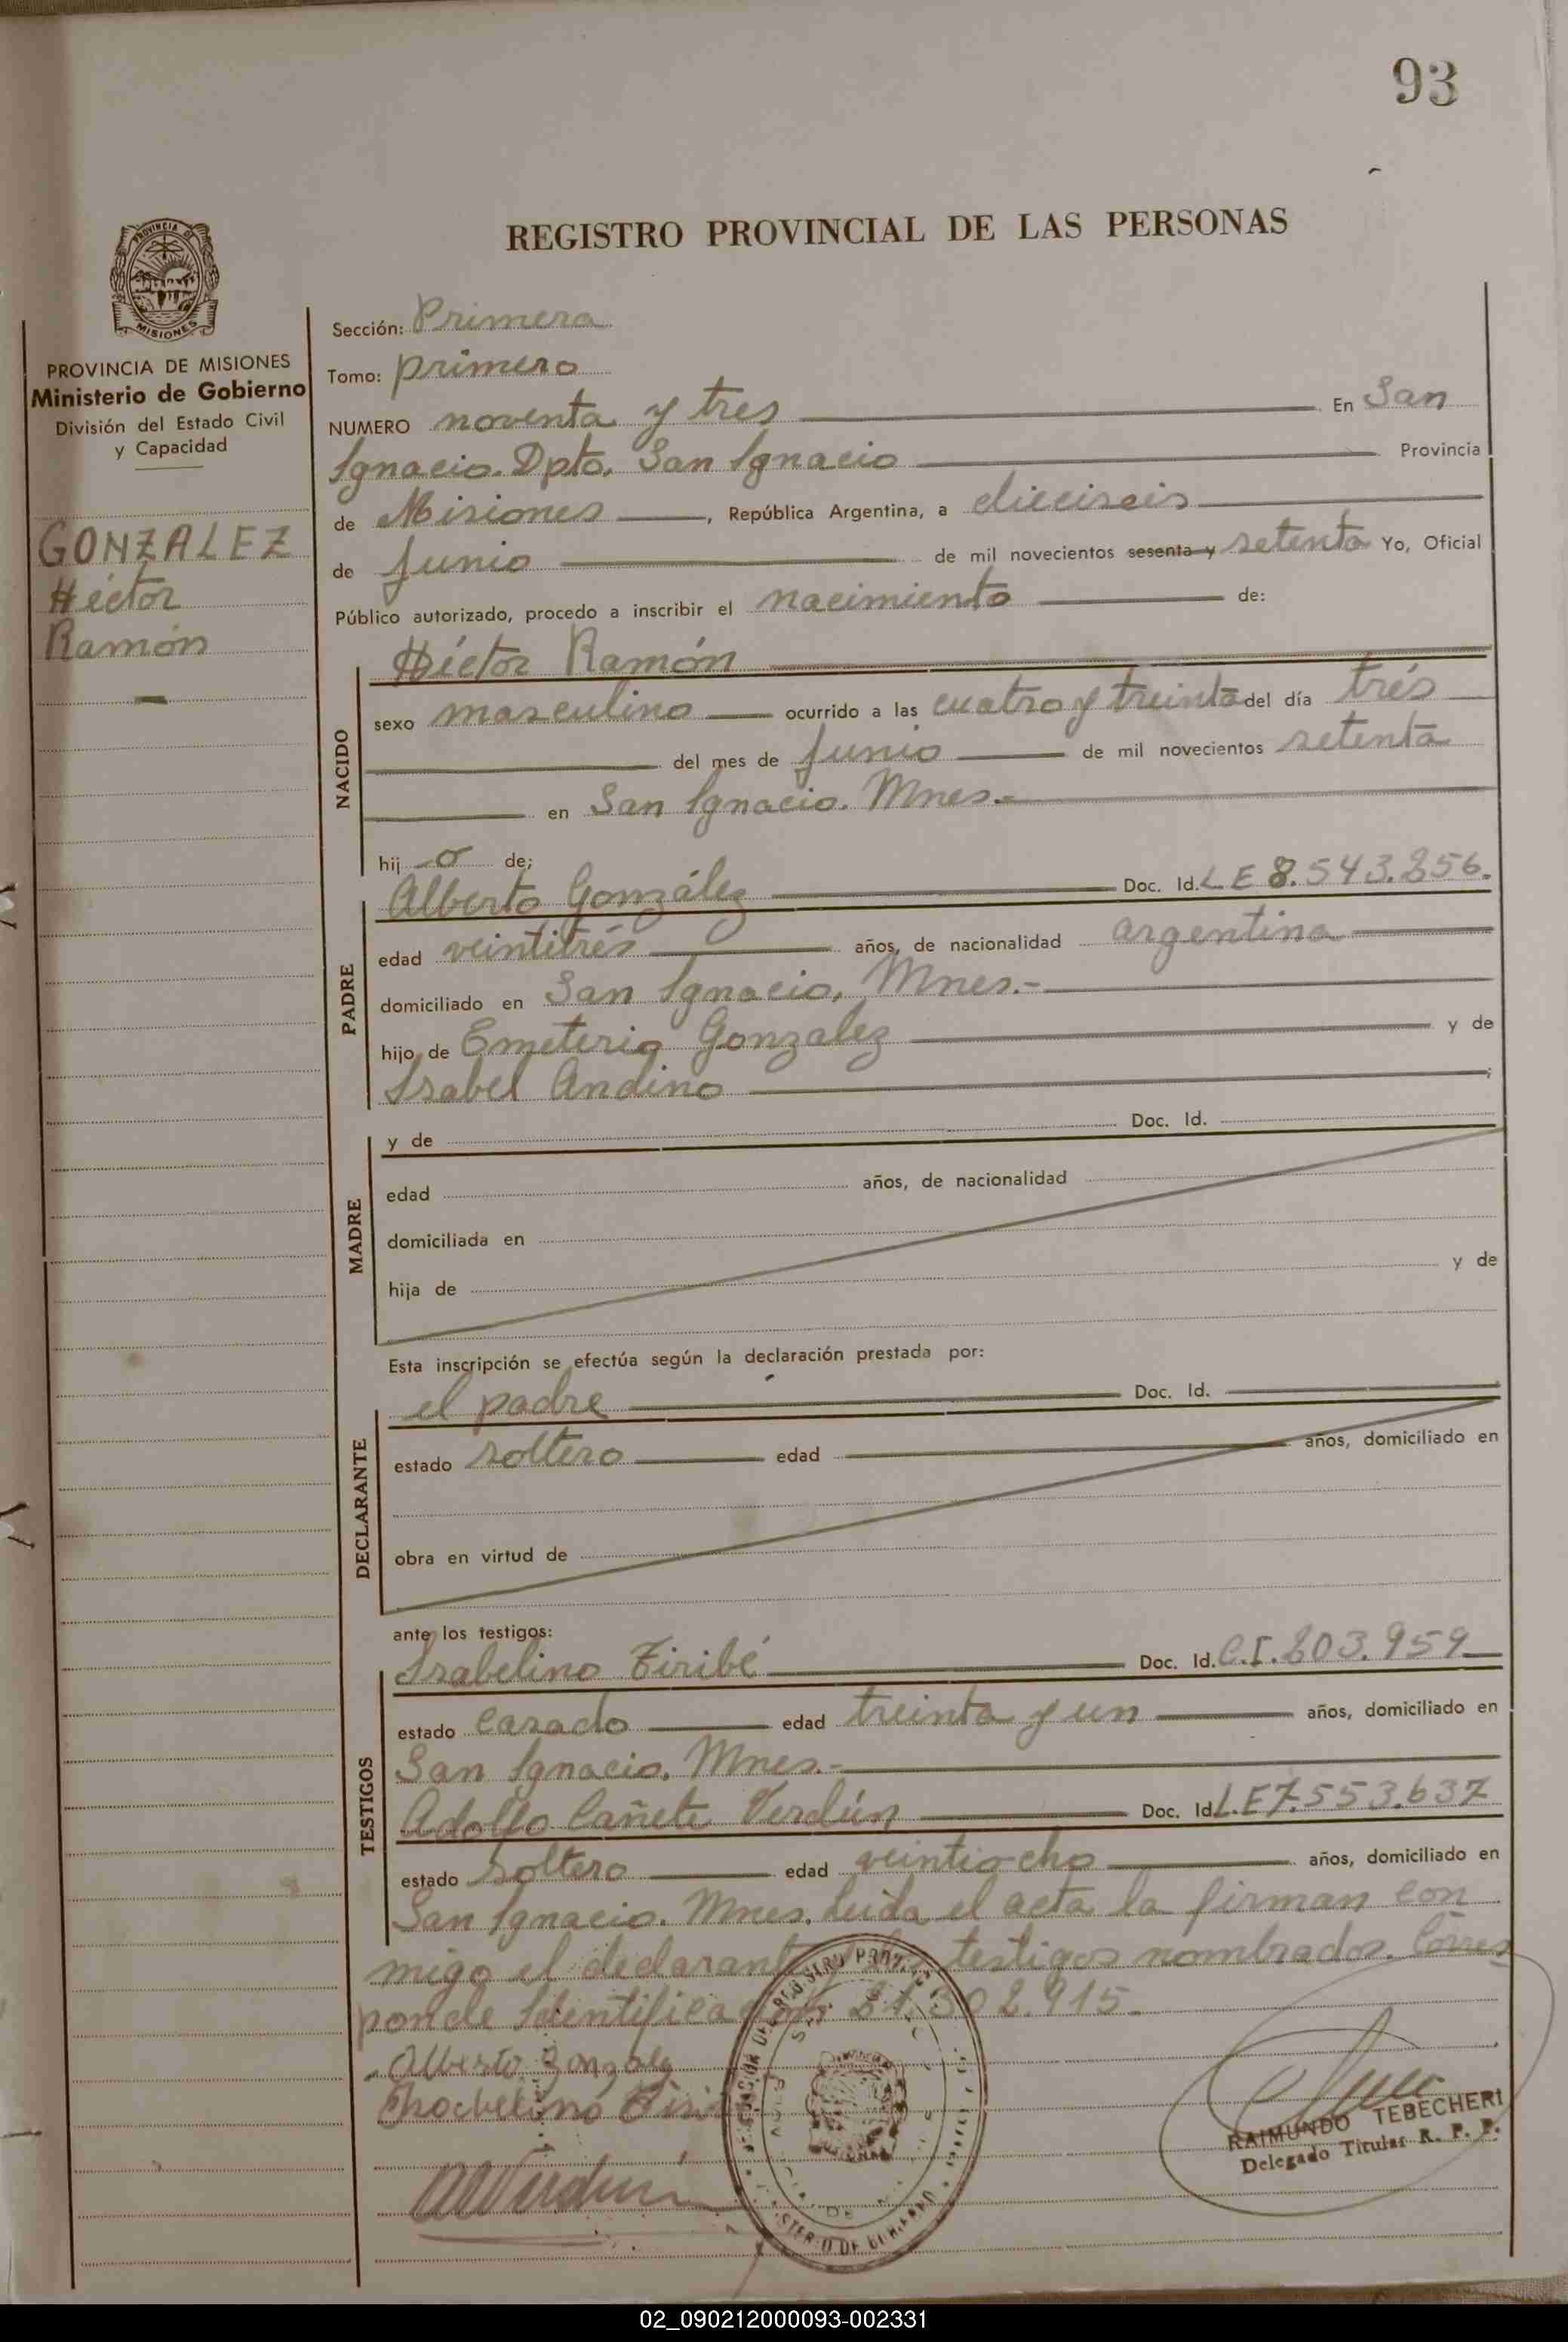 93
REGISTRO PROVINCIAL DE LAS PERSONAS
PROVINCIA DE MISIONES
PROVINCIA DE MISIONES
Ministerio de Gobierno
División del Estado Civil
y Capacidad
GONZALEZ
Héctor
Ramón
Sección: Primera
Tomo: primero
NUMERO noventa y tres En San
Ignacio. Dpto. San Ignacio Provincia
de Misiones, República Argentina, a dieciseis
de Junio de mil novecientos sesenta y setenta Yo, Oficial
Público autorizado, procedo a inscribir el nacimiento de:
Héctor Ramón
NACIDO
sexo masculino ocurrido a las cuatro y treinta del día trés
del mes de Junio de mil novecientos setenta
en San Ignacio. Mnes.-
hij o de;
Alberto González Doc. Id. L E 8.543.256.
PADRE
edad veintitrés años, de nacionalidad argentina
domiciliado en San Ignacio, Mnes.-
hijo de Emeterio Gonzalez y de
Isabel Andino ;
MADRE
y de Doc. Id.
edad años, de nacionalidad
domiciliada en
hija de y de
Esta inscripción se efectúa según la declaración prestada por:
el padre Doc. Id.
DECLARANTE
estado soltero edad años, domiciliado en
obra en virtud de
ante los testigos:
Isabelino Tiribé Doc. Id. C.I. 203.959
TESTIGOS
estado casado edad treinta y un años, domiciliado en
San Ignacio. Mnes.-
Adolfo Cañete Verdún Doc. Id. L.E 7.553.637
estado soltero edad veintiocho años, domiciliado en
San Ignacio. Mnes. Leida el acta la firman con
migo el declarante y los testigos nombrados. Corres
ponde Identificación 21.302.915.
Alberto Gonzalez
RAIMUNDO TEBECHERI
Delegado Titular R. P. P.
02_090212000093-002331